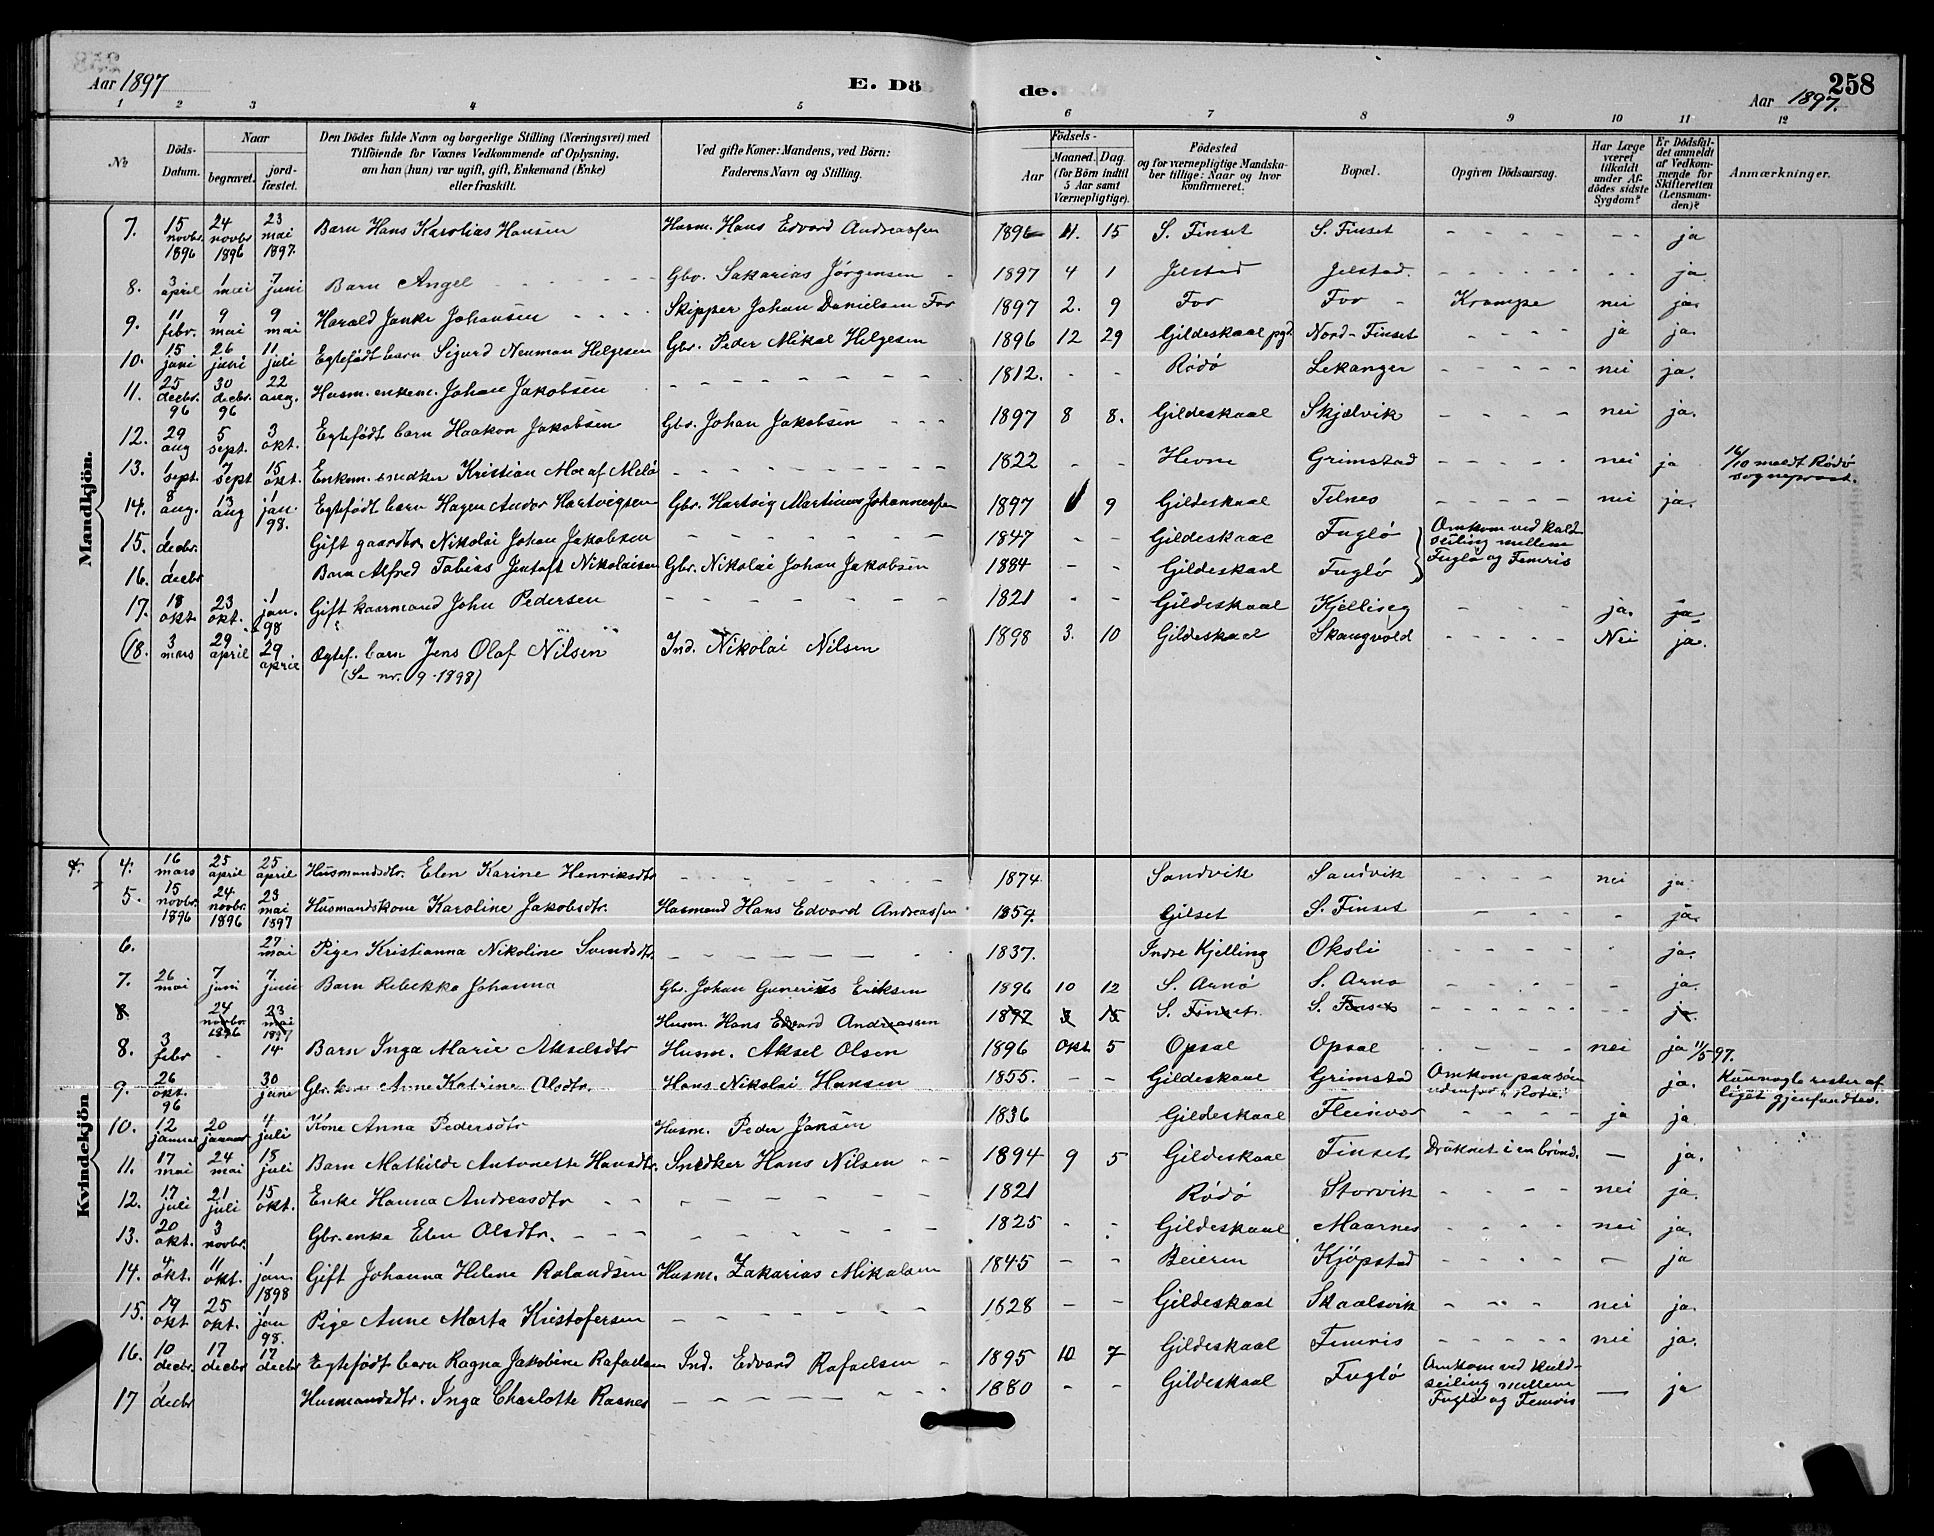 258
Aar 1897
E. Dö
de.
Aar 1897.
1 2 3 4 5 6 7 8 9 10 11 12
No
Döds-Datum.
Naar
begravet.
jord-fæstet.
Den Dödes fulde Navn og borgerlige Stilling (Næringsvei) med
Tilföiende for Voxnes Vedkommende af Oplysning,
om han (hun) var ugift, gift, Enkemand (Enke)
eller fraskilt.
Ved gifte Koner: Mandens, ved Börn:
Faderens Navn og Stilling.
Födsels-
Aar
Maaned. Dag.
(for Börn indtil
5 Aar samt
Værnepligtige).
Födested
og for værnepligtige Mandska-
ber tillige: Naar og hvor
konfirmeret.
Bopæl.
Opgiven Dödsaarsag.
Har Læge
været
tilkaldt
under Af-
dödes sidste
Sygdom?
Er Dödsfal-
det anmeldt
af Vedkom-
mende for
Skifteretten
(Lensman-
den)?
Anmærkninger.
Mandkjön.
7. 15 novbr. 1896 24 novbr 1896 23 mai 1897. Barn Hans Karolias Hansen Husm. Hans Edvard Andreassen 1896 11. 15 S. Finset S. Finset - - - - ja
8. 3 april 1 mai 7 juni Barn Angel - - - Gbr. Sakarias Jørgensen - 1897 4 1 Jelstad Jelstad. - - - - ja
9. 11 febr. 9 mai 9 mai Harald Janke Johansen - - - Skipper Johan Danielsen For 1897 2. 9 For For - Krampe nei ja.
10. 15 juni 26 juni 11 juli Egtefødt barn Sigurd Neuman Helgesen Gbr. Peder Mikal Helgesen 1896 12 29 Gildeskaal pgd. Nord-Finset - - - ja ja.
11. 25 decbr. 96 30 decbr. 96 22 aug. Husm. enkem. Johan Jakobsen - - - 1812. - - Rødø Lekanger - - - nei ja.
12. 29 aug 5 sept. 3 okt. Egtefødt barn Haakon Jakobsen Gbr. Johan Jakobsen - - - 1897 8 8. Gildeskaal Skjælvik - - - nei ja.
13. 1 sept. 7 sept 15 okt. Enkem. snedker Kristian Moe af Melø - - - 1822 - - Hevne Grimstad - - - nei ja 16/10 meldt Rødø sogneprest.
14. 8 aug. 13 aug 1 jan. 98. Egtefødt barn Hagen Andor Hartvigsen Gbr. Hartvig Martinus Johannessen 1897 9 Gildeskaal Telnes - - - nei ja.
15. 1 decbr. Gift gaardbr. Nikolai Johan Jakobsen - - - 1847 - - Gildeskaal Fuglø Omkom ved kuld-
seiling mellem
Fuglø og Femris
16. 1 decbr Barn Alfred Tobias Jentoft Nikolaisen Gbr. Nikolai Johan Jakobsen 1884 - - Gildeskaal Fuglø
17. 18 okt. 23 okt. 1 jan. 98 Gift kaarmand John Pedersen - - - 1821 - - Gildeskaal Kjelliseg - - - ja. ja
(18. 3 mars 29 april 29 april Ægtef. barn Jens Olaf Nilsen Ind. Nikolai Nilsen 1898 3. 10 Gildeskaal Skaugvold - - - Nei ja.
(Se nr. 9-1898)
Kvindekjön
4. 4. 16 mars 25 april 25 april Husmandsdtr. Elen Karine Henriksdtr - - - 1874 Sandvik Sandvik nei ja.
5. 15 novbr. 1896 24 novbr. 1896 23 mai 1897 Husmandskone Karoline Jakobsdtr. Husmand Hans Edvard Andreassen 1854. Gilset S. Finset - - - - ja.
6. 27 mai Pige Kristianna Nikoline Svendsdtr. - - - 1837. Indre Kjelling Oksli - - - - ja.
7. 26 mai 7 juni 7. juni Barn Rebekka Johanna Gbr. Johan Gunerius Eriksen 1896 10 12 S. Arnø S. Arnø - - - - ja.
8 24 novbr. 1896 23 mai 1897 Husm. Hans Edvard Andreassen 1897 3 15 S. Finset. S. Finset - - - ja.
8. 3 febr - 14 Barn Inga Marie Akselsdtr Husm. Aksel Olsen 1896 okt. 5 Opsal Opsal - - - nei ja 11/5 97.
9. 26 okt. 96 30 juni Gbr. kone Anne Katrine Olsdtr. Hans Nikolai Hansen 1855. - - Gildeskaal Grimstad Omkom paa søen
udenfor Rødø. ja. Kun nogle rester af
liget gjenfundtes.
10. 12 januar 20 januar 4 juli Kone Anna Pedersdtr Husm. Peder Jansen 1836 Gildeskaal Fleinvær - - - ja ja
11. 17 mai 24 mai 18 juli Barn Mathilde Antonette Hansdtr. Snedker Hans Nilsen - - 1894 9 5 Gildeskaal Finset. Druknet i en brønd. - ja.
12. 17 juli 21 juli 15 okt. Enke Hanna Andreasdtr - - - 1821 Rødø Storvik - - - nei ja.
13. 20 okt. 3 novbr. Gbr.enke Elen Olsdtr. - - - 1825 - - Gildeskaal Maarnes - - - nei ja.
14. 4 okt. 11 okt. 1 jan 1898 Gift Johanna Helene Rolandsen Husm. Zakarias Mikalsen 1845 - - Beieren Kjöpstad - - - - ja
15. 19 okt 25 okt. 1 jan 98. Pige Anne Marta Kristofersen - - - 1828 - - Gildeskaal Skaalsvik - - - nei ja.
16. 10 decbr. 17 decbr 17 decbr Egtefødt barn Ragna Jakobine Rafaelsen Ind. Edvard Rafaelsen - 1895 10 7 Gildeskaal Femris - - - nei ja.
17 1 decbr Husmandsdtr. Inga Charlotte Rasnes - - - 1880 - - Gildeskaal Fuglø Omkom ved kuld-
seiling mellem
Fuglø og Femris - ja